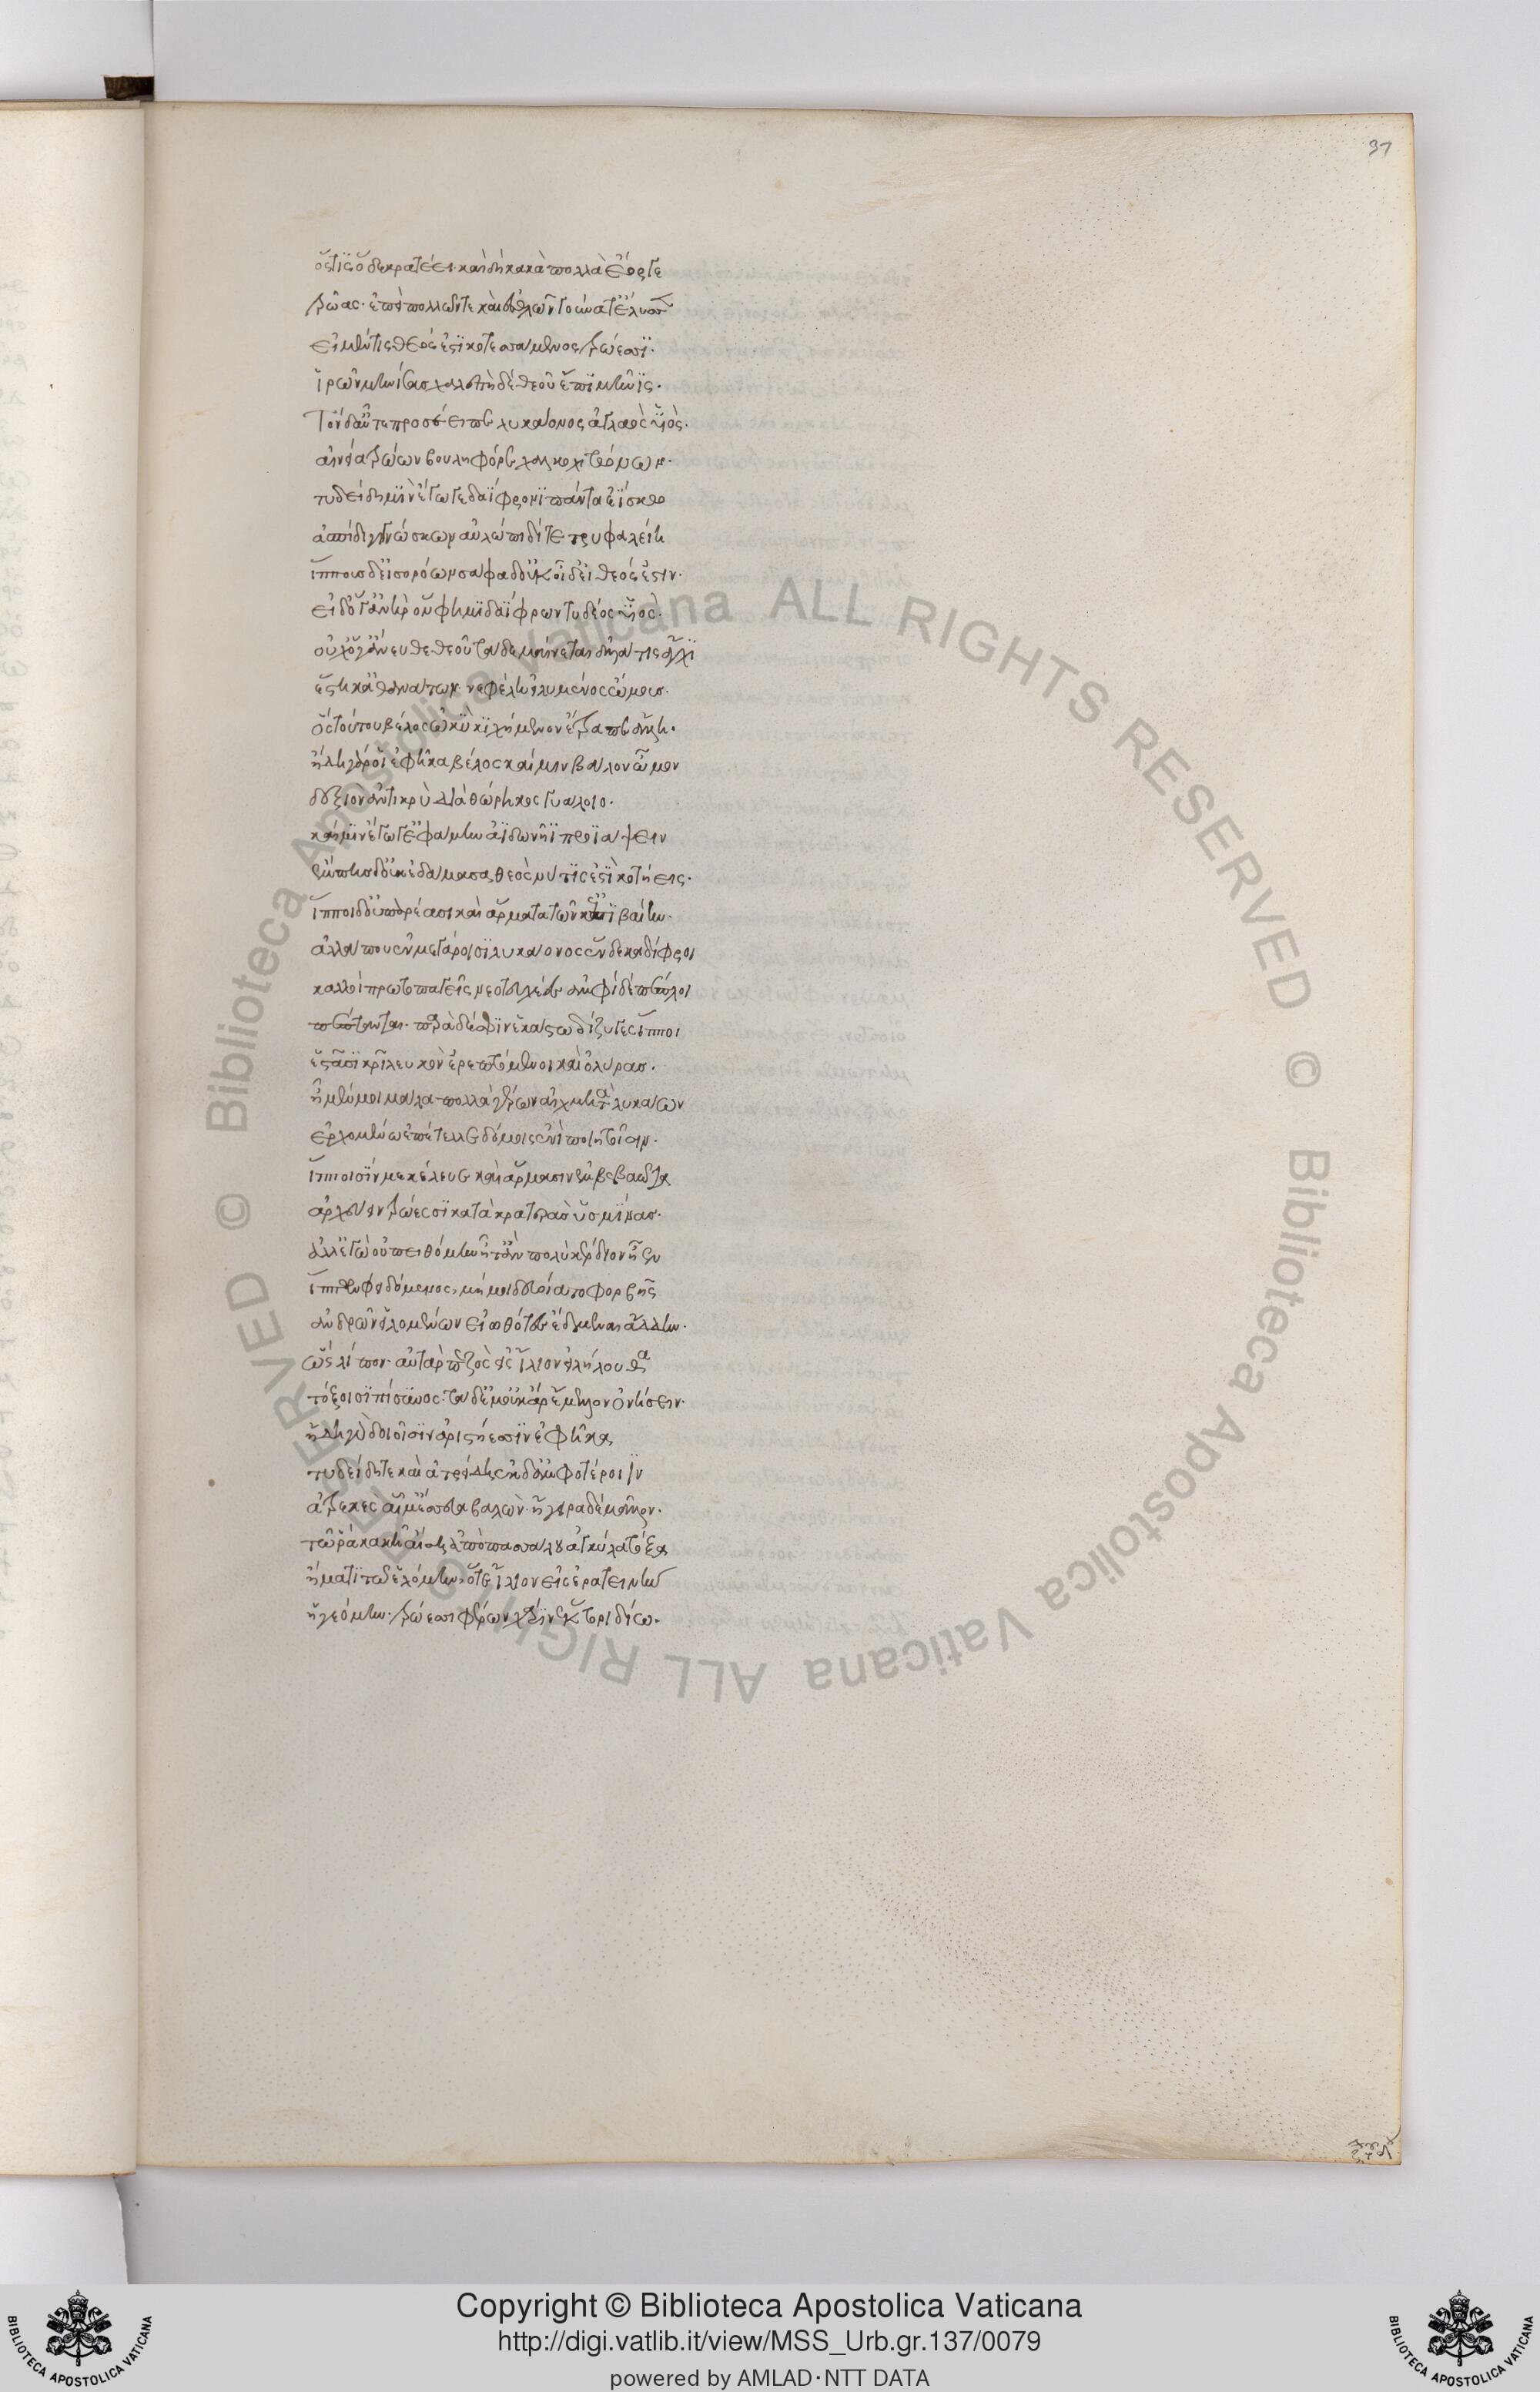 37
ὅστις ὅδε κρατέει καὶ δὴ κακὰ πολλὰ ἔοργε
τρῶας· ἐπεὶ πολλῶν τε καὶ ἐσθλῶν γούνατ' ἔλυσεν
εἰ μή τις θεός ἐστι κοτεσσάμενος τρώεσσι·
ἱρῶν μηνίσας χαλεπὴ δὲ θεοῦ ἔπι μῆνις·
Τὸν δ' αὖτε προσέειπε λυκάονος ἀγλαὸς υἱός·
αἰνεία τρώων βουληφόρε χαλκοχιτώνων·
τυδείδη μιν ἔγωγε δαΐφρονι πάντα ἐΐσκω
ἀσπίδι γιγνώσκων αὐλώπιδί τε τρυφαλείη
ἵππους δ' εἰσορόων σάφα δ' οὐκ οἶδ' εἰ θεός ἐστιν·
εἰ δ' ὅγ' ἀνὴρ ὅν φημι δαΐφρων τυδέος υἱός·
οὐχ ὅγ' ἄνευθε θεοῦ τάδε μαίνεται ἀλλά τις ἄγχι
ἕστηκ' ἀθανάτων νεφέλη εἰλυμένος ὤμους·
ὃς τούτου βέλος ὠκὺ κιχήμενον ἔτραπεν ἄλλη·
ἤδη γάρ οἱ ἐφῆκα βέλος καί μιν βάλον ὦμον
δεξιὸν ἀντικρὺ διὰ θώρηκος γυάλοιο·
καί μιν ἔγωγ' ἐφάμην ἀϊδωνῆϊ προϊάψειν
ἔμπης δ' οὐκ ἐδάμασσα θεός νύ τίς ἐστι κοτήεις·
ἵπποι δ' οὐ παρέασι καὶ ἅρματα τῶν κ' ἐπιβαίην·
ἀλλά που ἐν μεγάροισι λυκάονος ἕνδεκα δίφροι
καλοὶ πρωτοπαγεῖς νεοτευχέες ἀμφὶ δὲ πέπλοι
πέπτανται· παρὰ δέ σφιν ἑκάστω δίζυγες ἵπποι
ἑστᾶσι κρῖ λευκὸν ἐρεπτόμενοι καὶ ὀλύρας·
ἦ μέν μοι μάλα πολλὰ γέρων αἰχμητὰ λυκάων
ἐρχομένω ἐπέτελλε δόμοις ἐνὶ ποιητοῖσιν·
ἵπποισίν με κέλευε καὶ ἅρμασιν ἐμβεβαῶτα
ἀρχεύειν τρώεσσι κατὰ κρατερὰς ὑσμίνας·
ἀλλ' ἐγὼ οὐ πειθόμην ἦ τ' ἂν πολὺ κέρδιον ἦεν
ἵππων φειδόμενος, μή μοι δευοίατο φορβῆς
ἀνδρῶν εἰλομένων εἰωθότες ἔδμεναι ἄδδην·
ὣς λίπον· αὐτὰρ πεζὸς ἐς ἴλιον εἰλήλουθα
τόξοισι πίσυνος· τὰ δέ μοι οὐκ ἄρ' ἔμελλον ὀνήσειν·
ἤδη γὰρ δοιοῖσιν ἀριστήεσσιν ἐφῆκα
τυδείδη τε καὶ ἀτρείδη ἐκ δ' ἀμφοτέροιϊν
ἀτρεκὲς αἷμ' ἔσσευα βαλὼν· ἤγειρα δὲ μᾶλλον·
τῶ ῥα κακῆ αἴση ἀπὸ πασσάλου ἀγκύλα τόξα
ἤματι τῶ ἑλόμην· ὅτε ἴλιον εἰς ἐρατεινὴν
ἡγεόμην· τρώεσσι φέρων χάριν ἕκτορι δίω·
© Biblioteca Apostolica Vaticana ALL RIGHTS RESERVED © Biblioteca Apostolica Vaticana ALL RIGHTS RESERVED
Copyright © Biblioteca Apostolica Vaticana
http://digi.vatlib.it/view/MSS_Urb.gr.137/0079
powered by AMLAD·NTT DATA
BIBLIOTECA APOSTOLICA VATICANA
BIBLIOTECA APOSTOLICA VATICANA